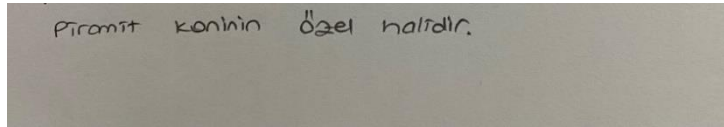 Piramit koninin özel halidir.